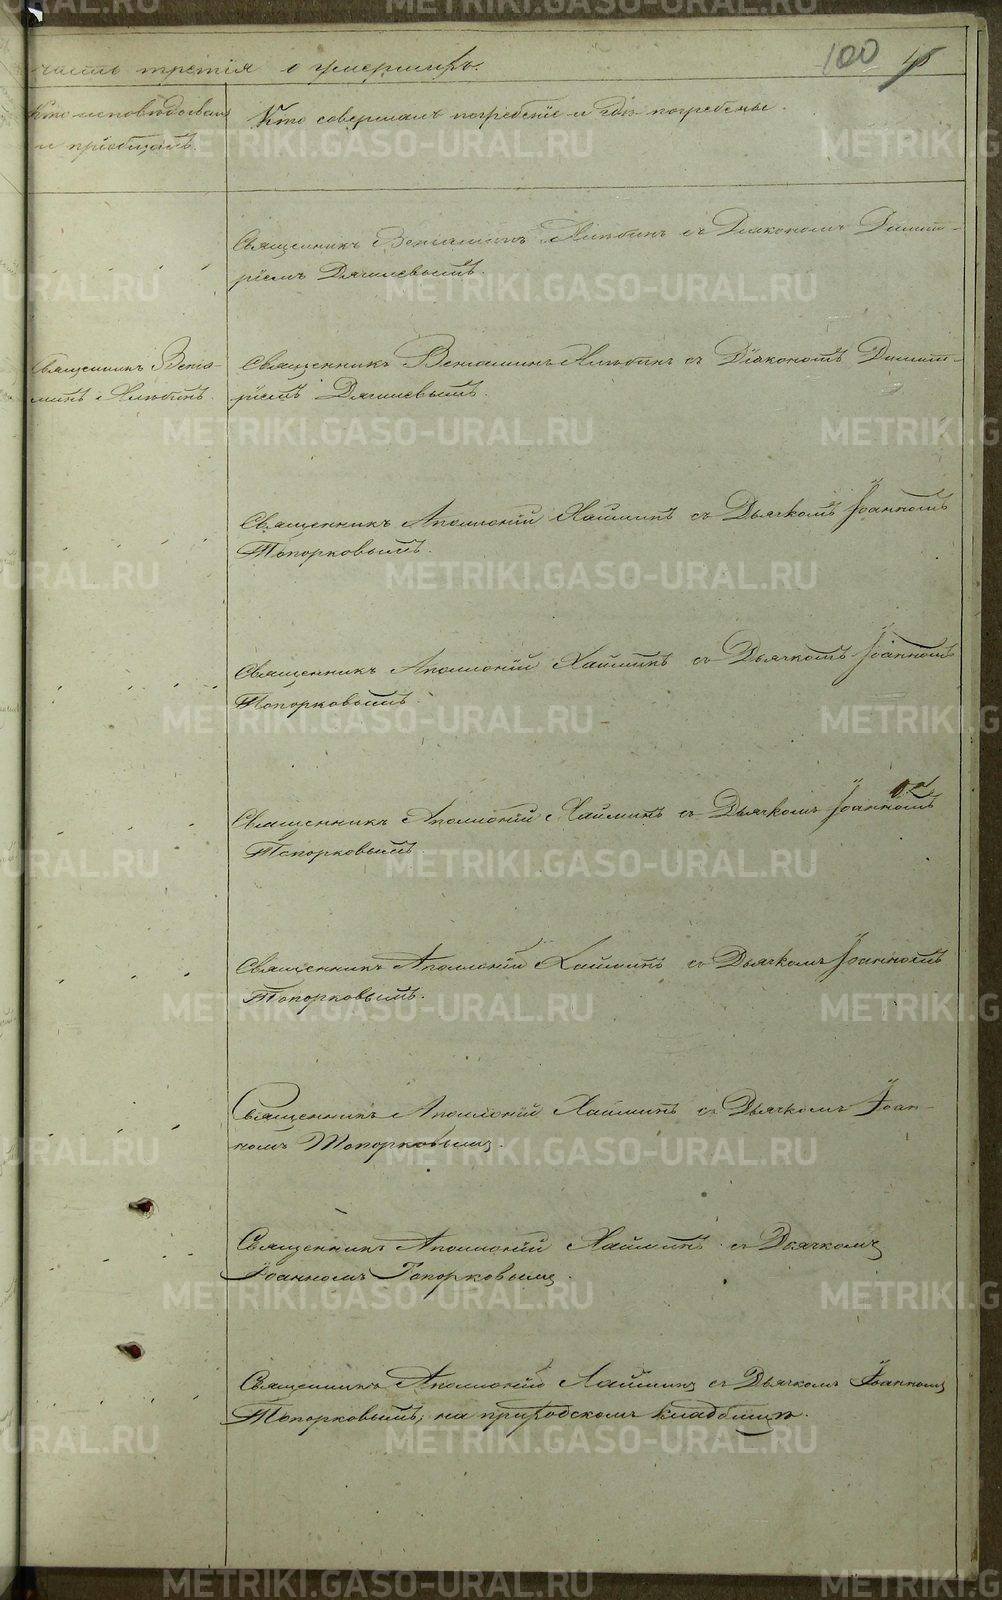 часть третія о умершихъ.
100
Кто исповѣдовалъ
и пріобщалъ.
Кто совершалъ погребеніе и гдѣ погребены.
Священникъ Веніаминъ с Діакономъ Димит-
ріемъ
Священникъ Веніа-
минъ
Священникъ Веніаминъ съ Діакономъ Димит-
ріемъ
Священникъ Аполлоній Хаймин съ Дьячкомъ Іоанномъ
Топорковымъ.
Священникъ Аполлоній Хаймин съ Дьячкомъ Іоанномъ
Топорковымъ.
Священникъ Аполлоній Хаймин съ Дьячкомъ Іоанномъ
Топорковымъ.
Священникъ Аполлоній Хаймин съ Дьячкомъ Іоанномъ
Топорковымъ.
Священникъ Аполлоній Хаймин съ Дьячкомъ Іоан-
номъ Топорковымъ.
Священникъ Аполлоній Хаймин съ Дьячкомъ
Іоанномъ Топорковымъ.
Священникъ Аполлоній Хаймин съ Дьячкомъ Іоанномъ
Топорковымъ, на приходскомъ кладбищѣ.
METRIKI.GASO-URAL.RU